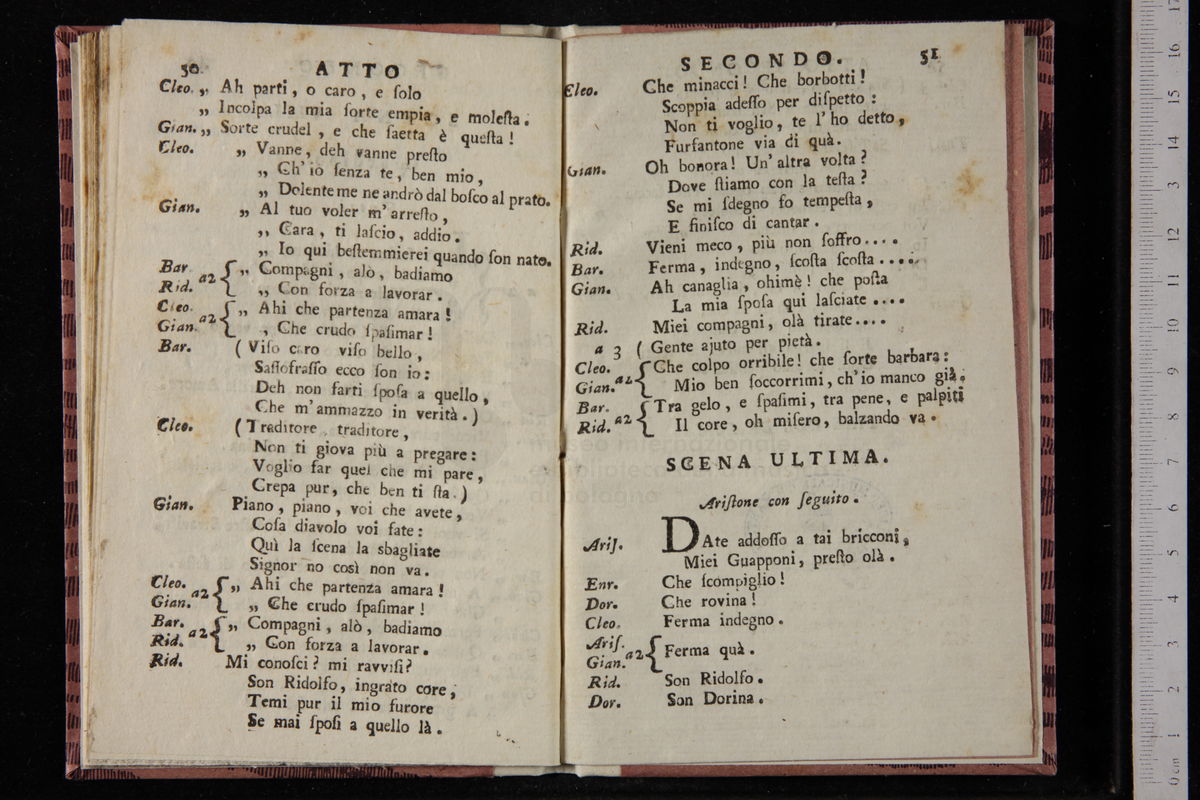 50 ATTO
Cleo. „ Ah parti, o caro, e ſolo
„ Incolpa la mia ſorte empia, e moleſta.
Gian. „ Sorte crudel, e che ſaetta è queſta!
Cleo. „ Vanne, deh vanne preſto
„ Ch' io ſenza te, ben mio,
„ Dolente me ne andrò dal boſco al prato.
Gian. „ Al tuo voler m' arreſto,
„ Cara, ti laſcio, addio.
„ Io qui beſtemmierei quando ſon nato.
Bar. Rid. a2 { „ Compagni, alò, badiamo
„ Con forza a lavorar.
Cleo. Gian. a2 { „ Ahi che partenza amara!
„ Che crudo ſpaſimar!
Bar. (Viſo caro viſo bello,
Saſſofraſſo ecco ſon io:
Deh non farti ſpoſa a quello,
Che m' ammazzo in verità.)
Cleo. (Traditore, traditore,
Non ti giova più a pregare:
Voglio far quel che mi pare,
Crepa pur, che ben ti ſta.)
Gian. Piano, piano, voi che avete,
Coſa diavolo voi fate:
Quì la ſcena la sbagliate
Signor no così non va.
Cleo. Gian. a2 { „ Ahi che partenza amara!
„ Che crudo ſpaſimar!
Bar. Rid. a2 { „ Compagni, alò, badiamo
„ Con forza a lavorar.
Rid. Mi conoſci? mi ravviſi?
Son Ridolfo, ingrato core,
Temi pur il mio furore
Se mai ſpoſi a quello là.
SECONDO. 51
Cleo. Che minacci! Che borbotti!
Scoppia adeſſo per diſpetto:
Non ti voglio, te l' ho detto,
Furfantone via di quà.
Gian. Oh bonora! Un' altra volta?
Dove ſtiamo con la teſta?
Se mi ſdegno fo tempeſta,
E finiſco di cantar.
Rid. Vieni meco, più non ſoffro....
Bar. Ferma, indegno, ſcoſta ſcoſta.....
Gian. Ah canaglia, ohimè! che poſta
La mia ſpoſa qui laſciate....
Rid. Miei compagni, olà tirate....
a 3 (Gente ajuto per pietà.
Cleo. Gian. a2 { Che colpo orribile! che ſorte barbara:
Mio ben ſoccorrimi, ch' io manco già.
Bar. Rid. a2 { Tra gelo, e ſpaſimi, tra pene, e palpiti
Il core, oh miſero, balzando va.
SCENA ULTIMA.
Ariſtone con ſeguito.
Ariſ. DAte addoſſo a tai bricconi,
Miei Guapponi, preſto olà.
Enr. Che ſcompiglio!
Dor. Che rovina!
Cleo. Ferma indegno.
Ariſ. Gian. a2 { Ferma quà.
Rid. Son Ridolfo.
Dor. Son Dorina.